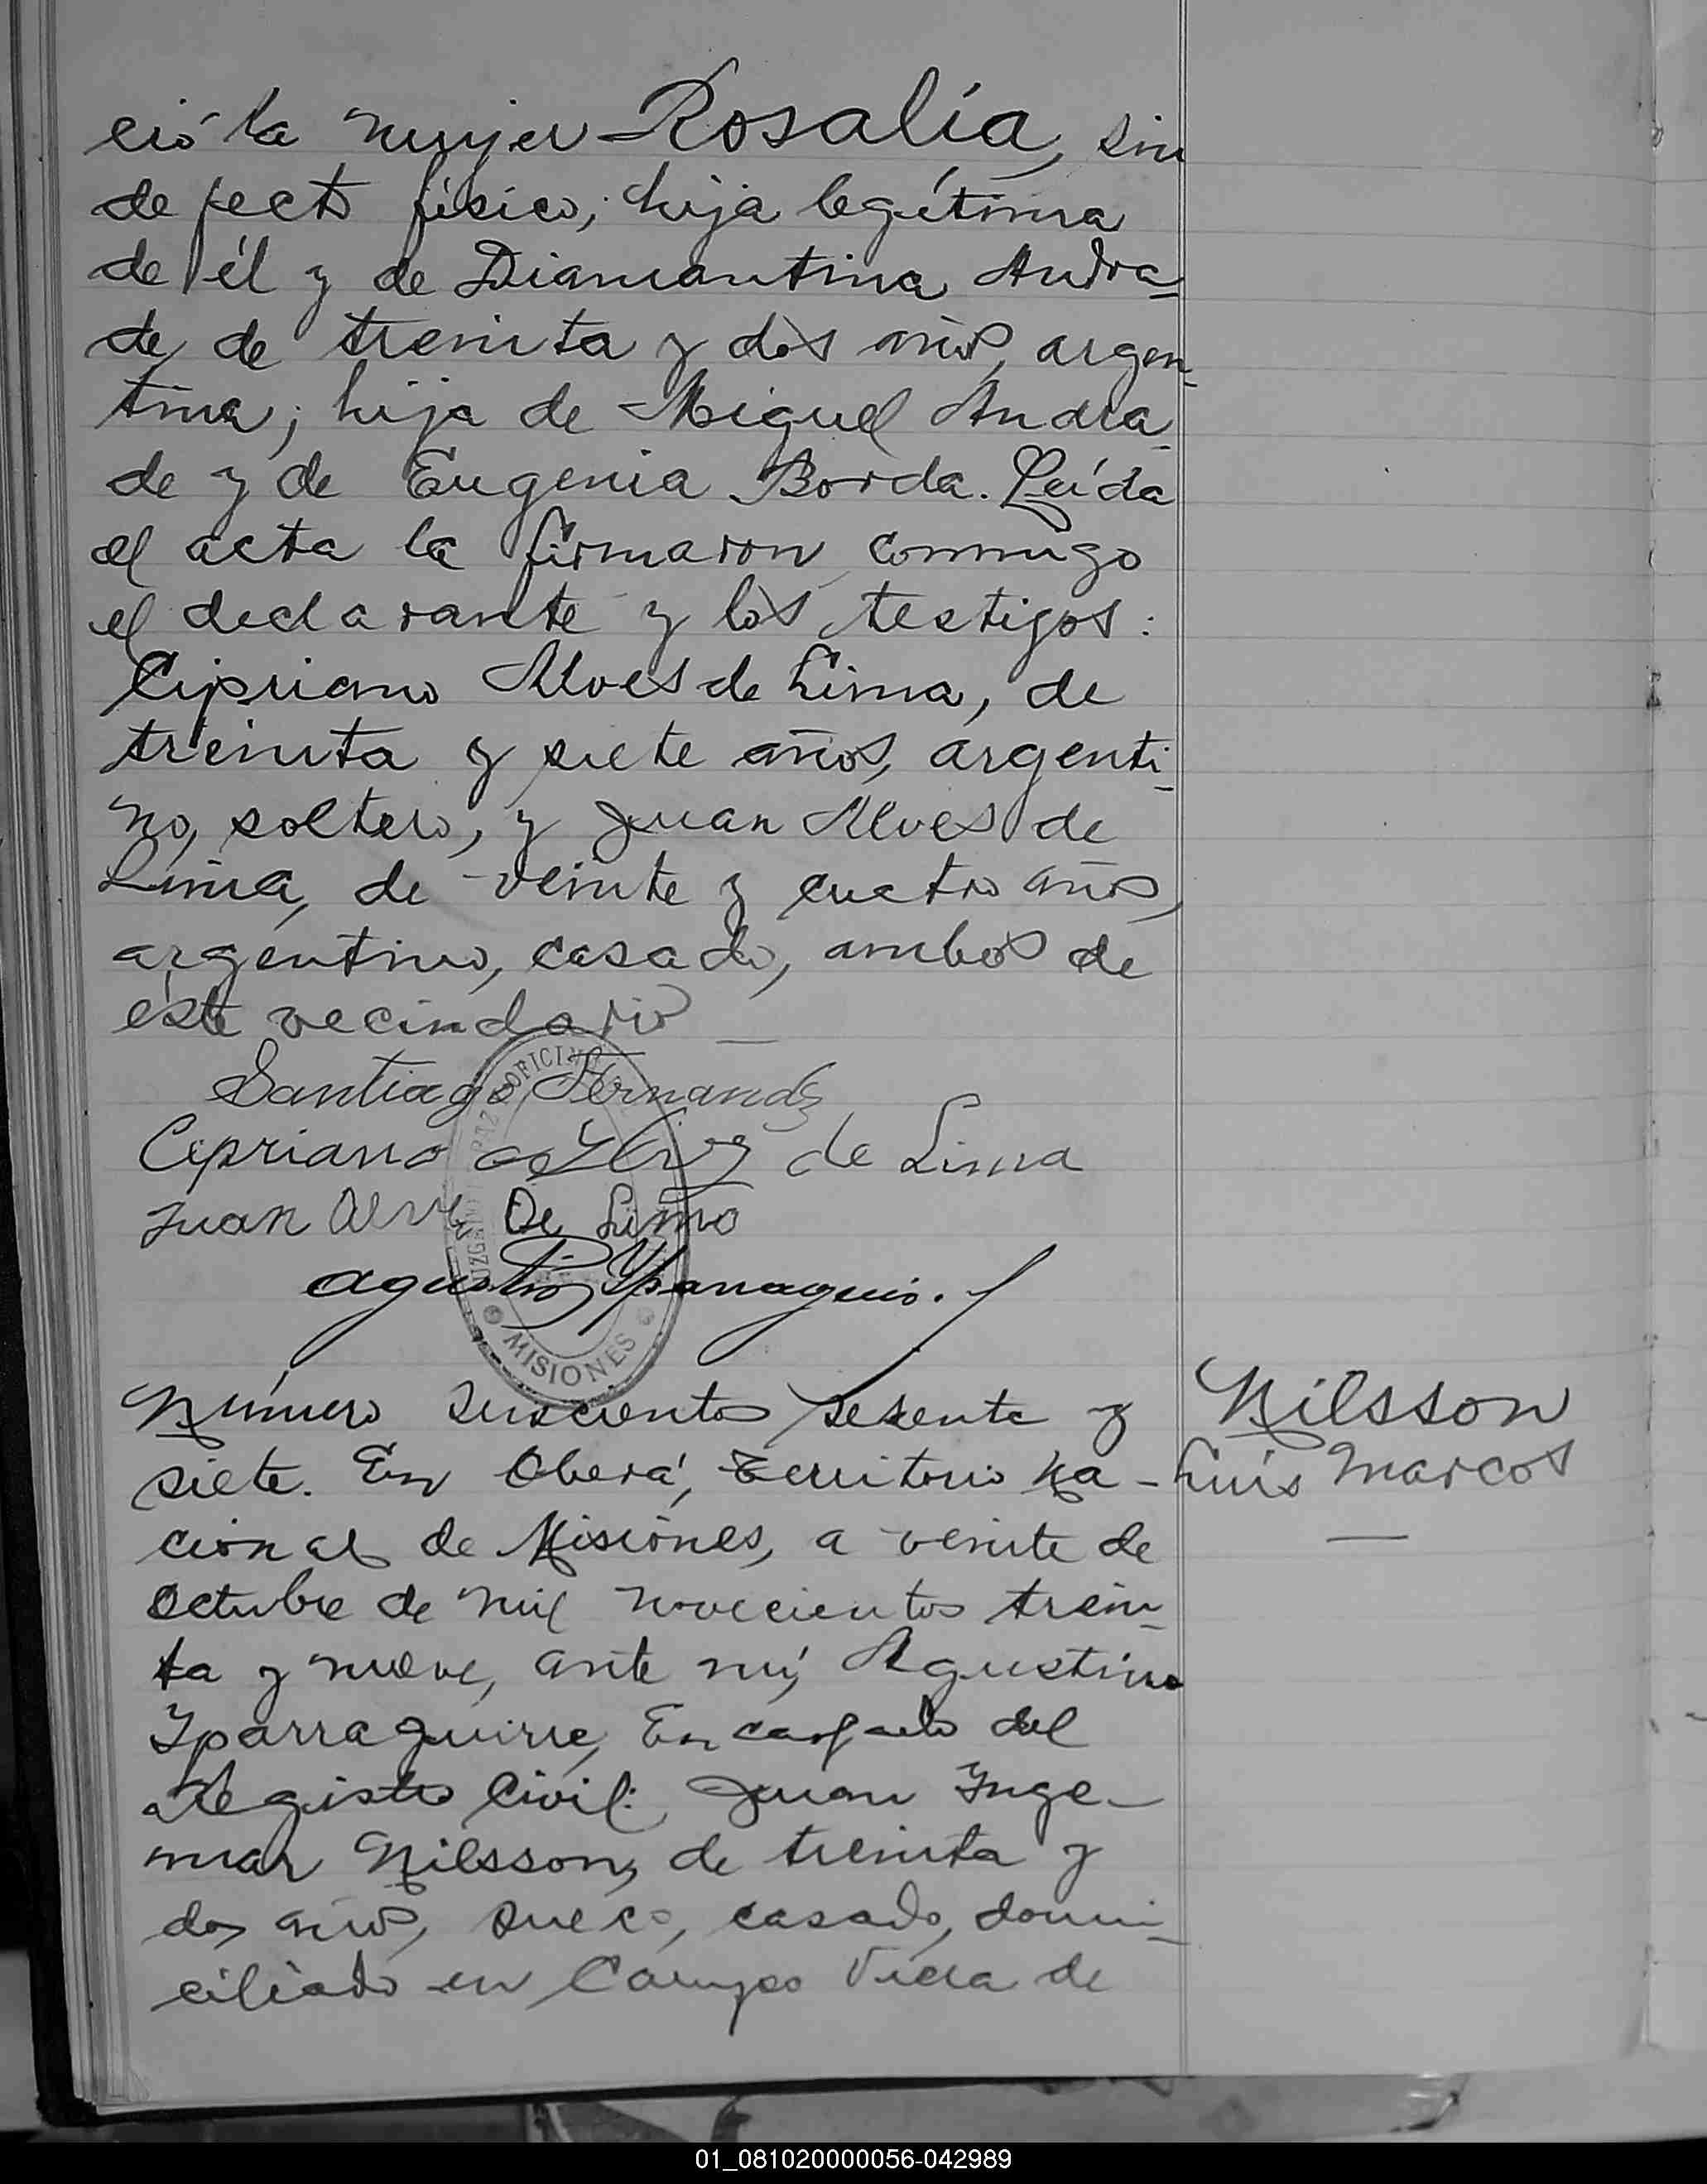 ció la mujer Rosalía, sin
defecto físico; hija legítima
de él y de Diamantina Andra-
de, de treinta y dos años, argen-
tina; hija de Miguel Andra-
de y de Eugenia Borda. Leída
el acta la firmaron conmigo
el declarante y los testigos:
Cipriano Alves de Lima, de
treinta y siete años, argenti-
no, soltero, y Juan Alves de
Lima, de veinte y cuatro años,
argentino, casado, ambos de
éste vecindario
Santiago Fernandz
Cipriano de Lima
Juan Alve De Lima
OFICINA
MISIONES
Agustin Yparraguirre
Número seiscientos sesenta y
siete. En Oberá, Territorio Na-
cional de Misiones, a veinte de
Octubre de mil novecientos trein-
ta y nueve, ante mí, Agustin
Yparraguirre, Encargado del
Registro Civil: Juan Inge-
mar Nilsson, de treinta y
dos años, sueco, casado, domi-
ciliado en Campo Viera de
Nilsson
Luis Marcos
01_081020000056-042989